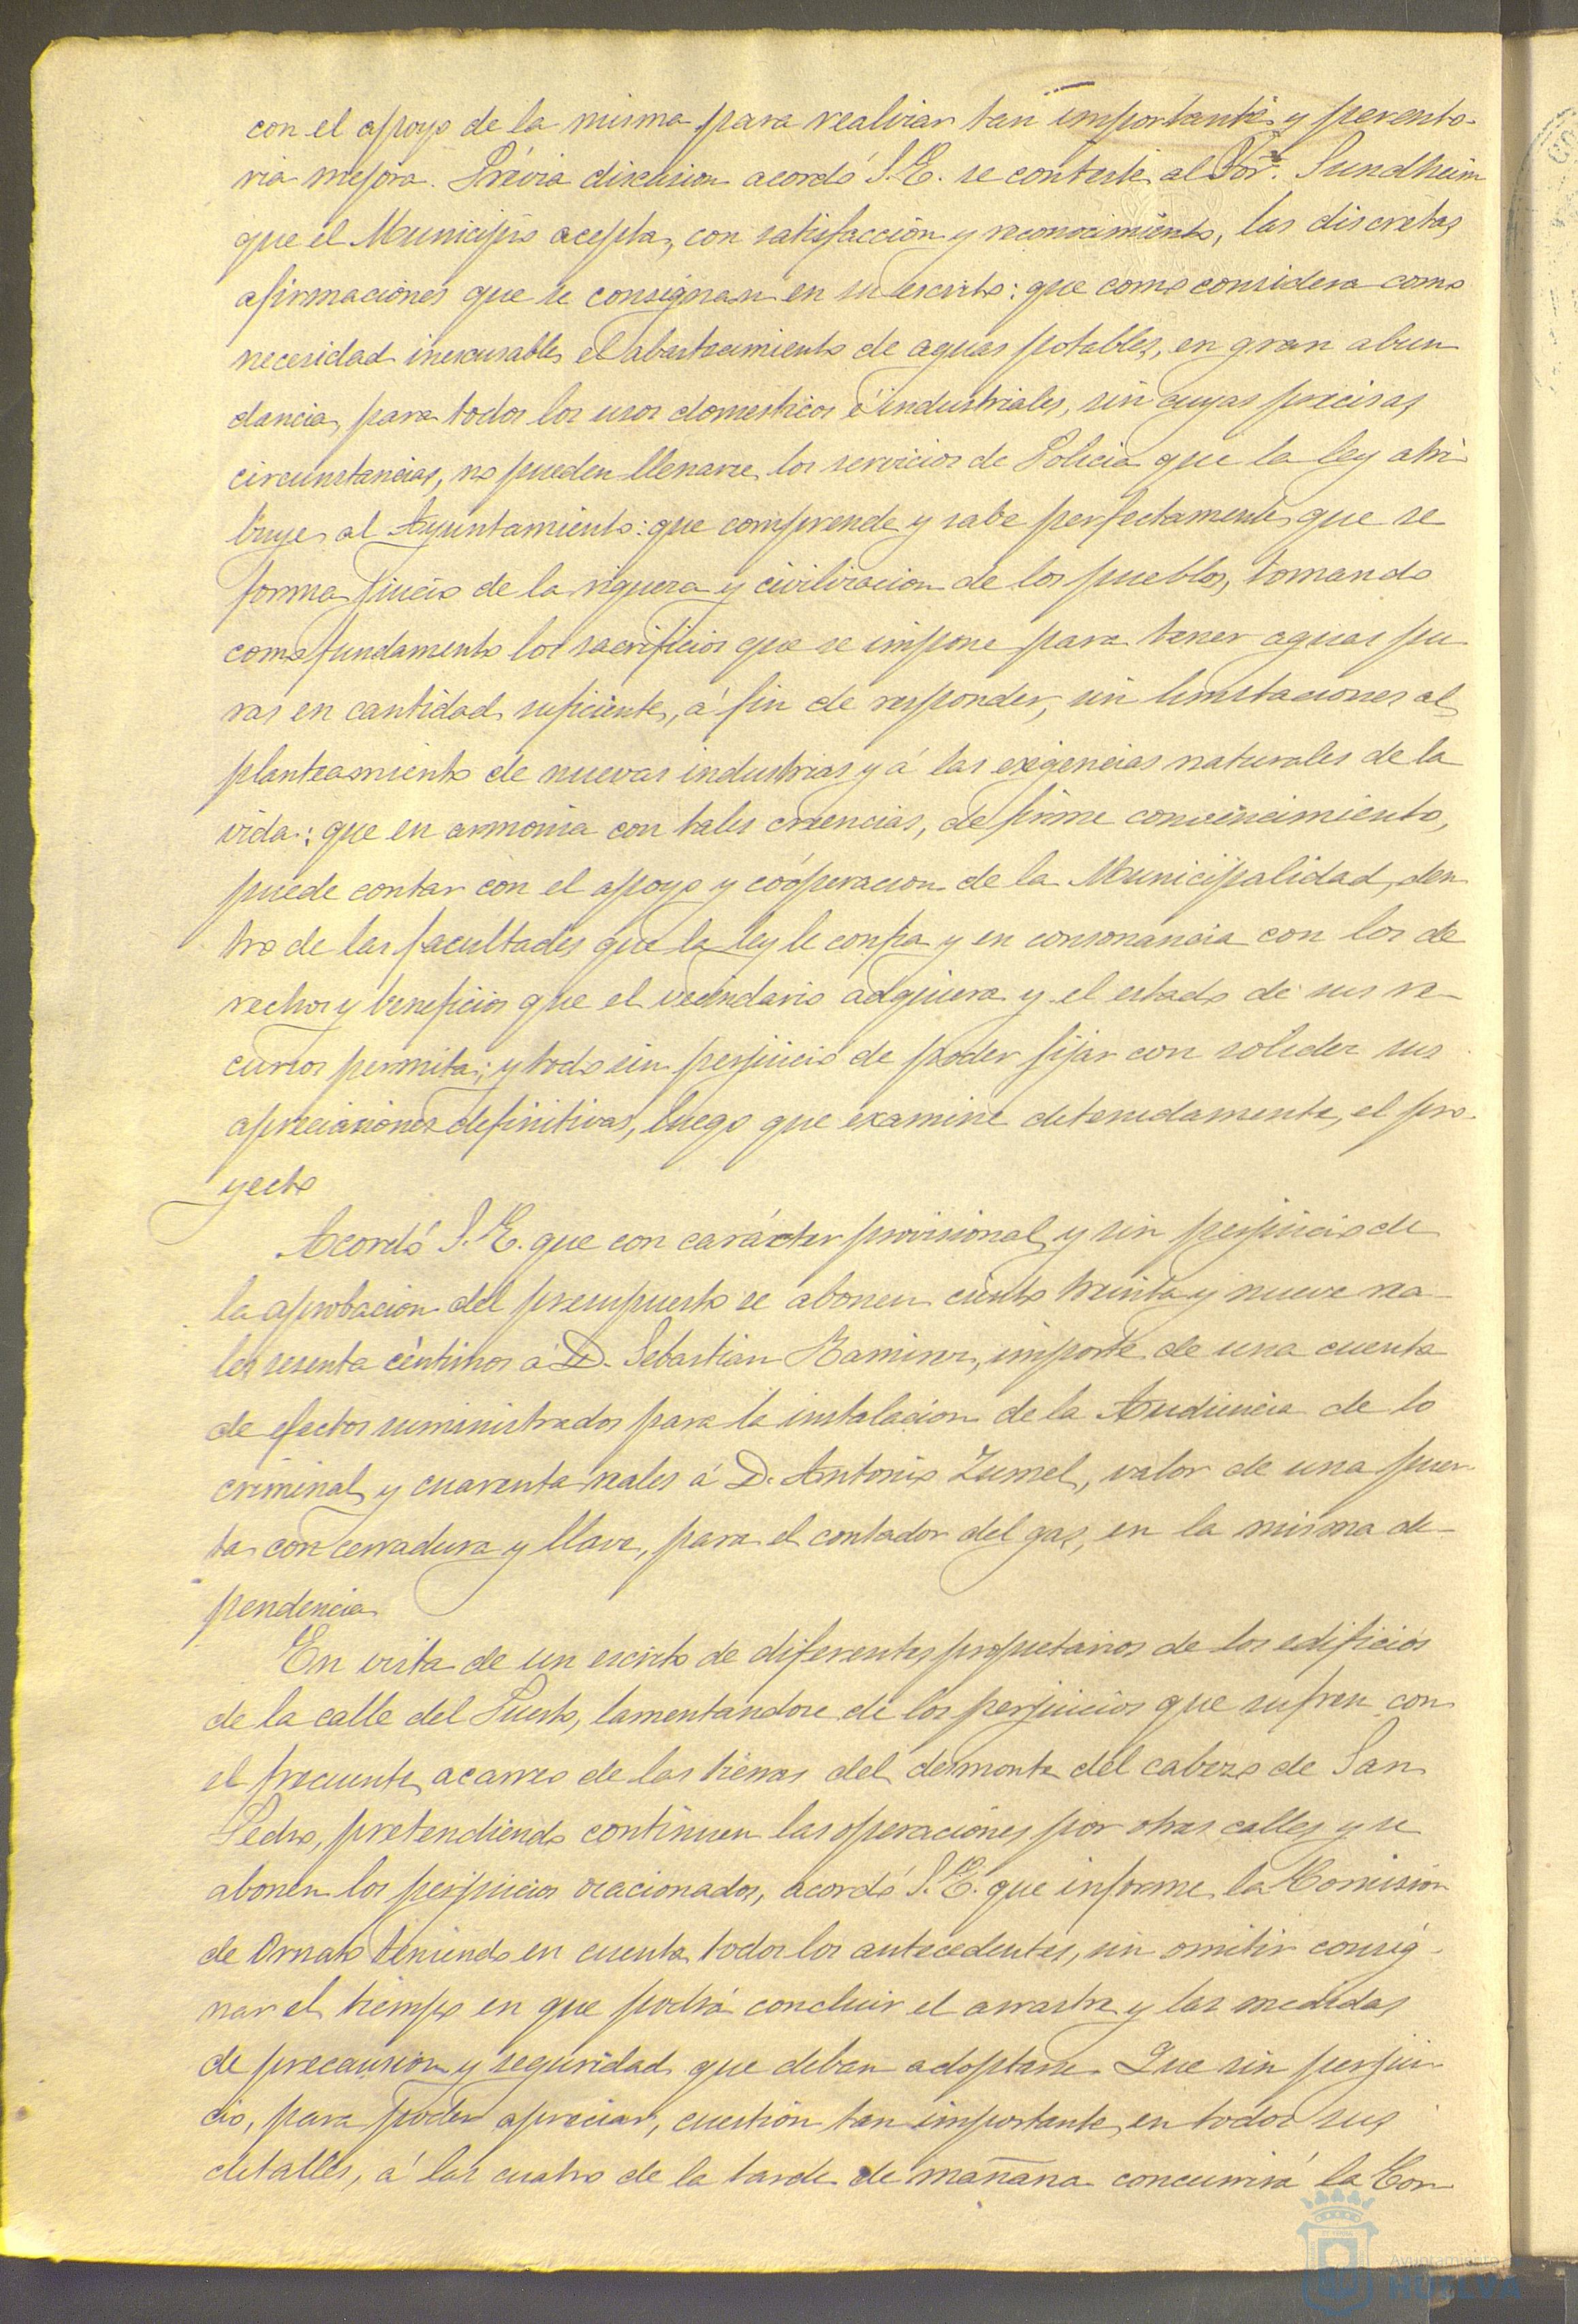 con el apoyo de la misma para realizar tan importante y perento-
ria mejora. Prévia discusion acordó S.E. se conteste al Sor. Sundheim
que el Municipio acepta, con satisfacción y reconocimiento, las discretas
afirmaciones que se consignan en su escrito: que como considera como
necesidad inescusable, el abastecimiento de aguas potables, en gran abun
dancia, para todos los usos domesticos é industriales, sin cuyas precisas
circunstancias, no pueden llenarse los servicios de Policia que la ley atri
buye al Ayuntamiento: que comprende y sabe perfectamente que se
forma juicio de la riqueza y civilizacion de los pueblos, tomando
como fundamento los sacrificios que se impone para tener aguas pu
ras en cantidad suficiente, á fin de responder, sin limitaciones al
planteamiento de nuevas industrias y á las exigencias naturales de la
vida: que en armonia con tales creencias, de firme convencimiento,
puede contar con el apoyo y coóperacion de la Municipalidad, den
tro de las facultades que la ley le confia y en consonancia con los de
rechos y beneficios que el vecindario adquiera y el estado de sus re-
cursos permita; y todo sin perjuicio de poder fijar con solidez sus
apreciaciones definitivas, luego que examine detenidamente, el pro-
yecto
Acordó S.E. que con carácter provisional y sin perjuicio de
la aprobacion del presupuesto se abonen ciento treinta y nueve rea-
les sesenta céntimos á D. Sebastian Ramirez, importe de una cuenta
de efectos suministrados para la instalacion de la Audiencia de lo
criminal y cuarenta reales á D. Antonio Zumel, valor de una puer
ta con cerradura y llave, para el contador del gas, en la misma de-
pendencia
En vista de un escrito de diferentes propietarios de los edificios
de la calle del Puerto, lamentandose de los perjuicios que sufren con
el frecuente acarreo de las tierras del desmonte del cabezo de San
Pedro, pretendiendo continuen las operaciones por otras calles y se
abonen los perjuicios ocacionados, acordó S.E. que informe la Comision
de Ornato teniendo en cuenta todos los antecedentes, sin omitir consig-
nar el tiempo en que podrá concluir el arrastre y las medidas
de precausion y seguridad que deban adoptarse. Que sin perjui-
cio, para poder apreciar, cuestión tan importante, en todos sus
detalles, á las cuatro de la tarde de mañana concurrirá la Cor-
Ayuntamiento
HUELVA